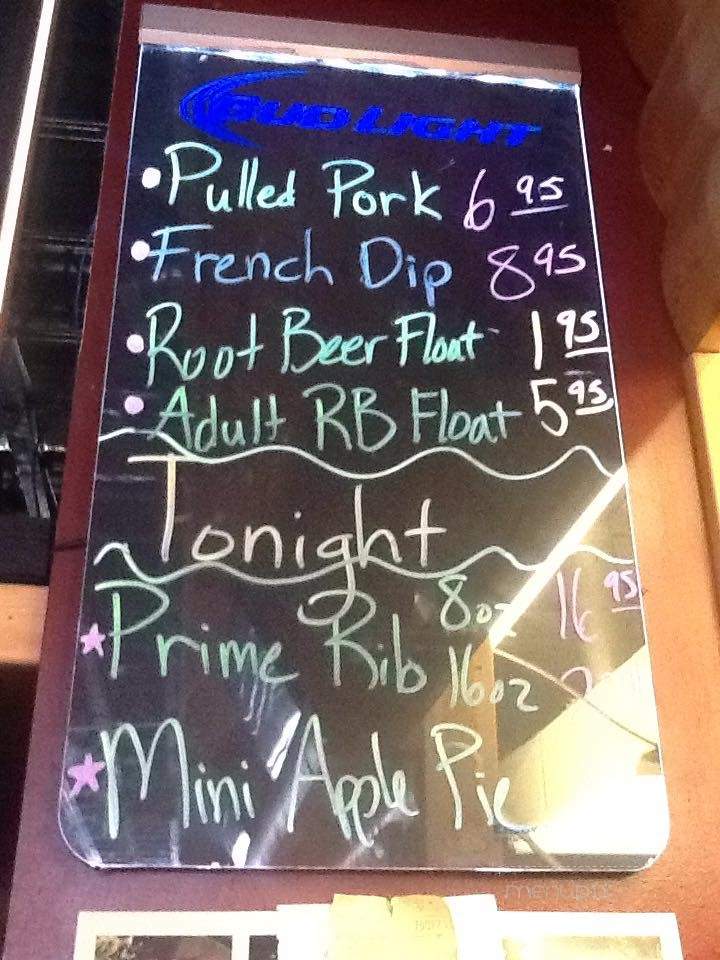 BUD LIGHT
•Pulled Pork 6 95
•French Dip 8 95
•Root Beer Float 1 95
•Adult RB Float 5 95
Tonight
8oz 16 95
★Prime Rib
16oz
★Mini Apple Pie
menupix